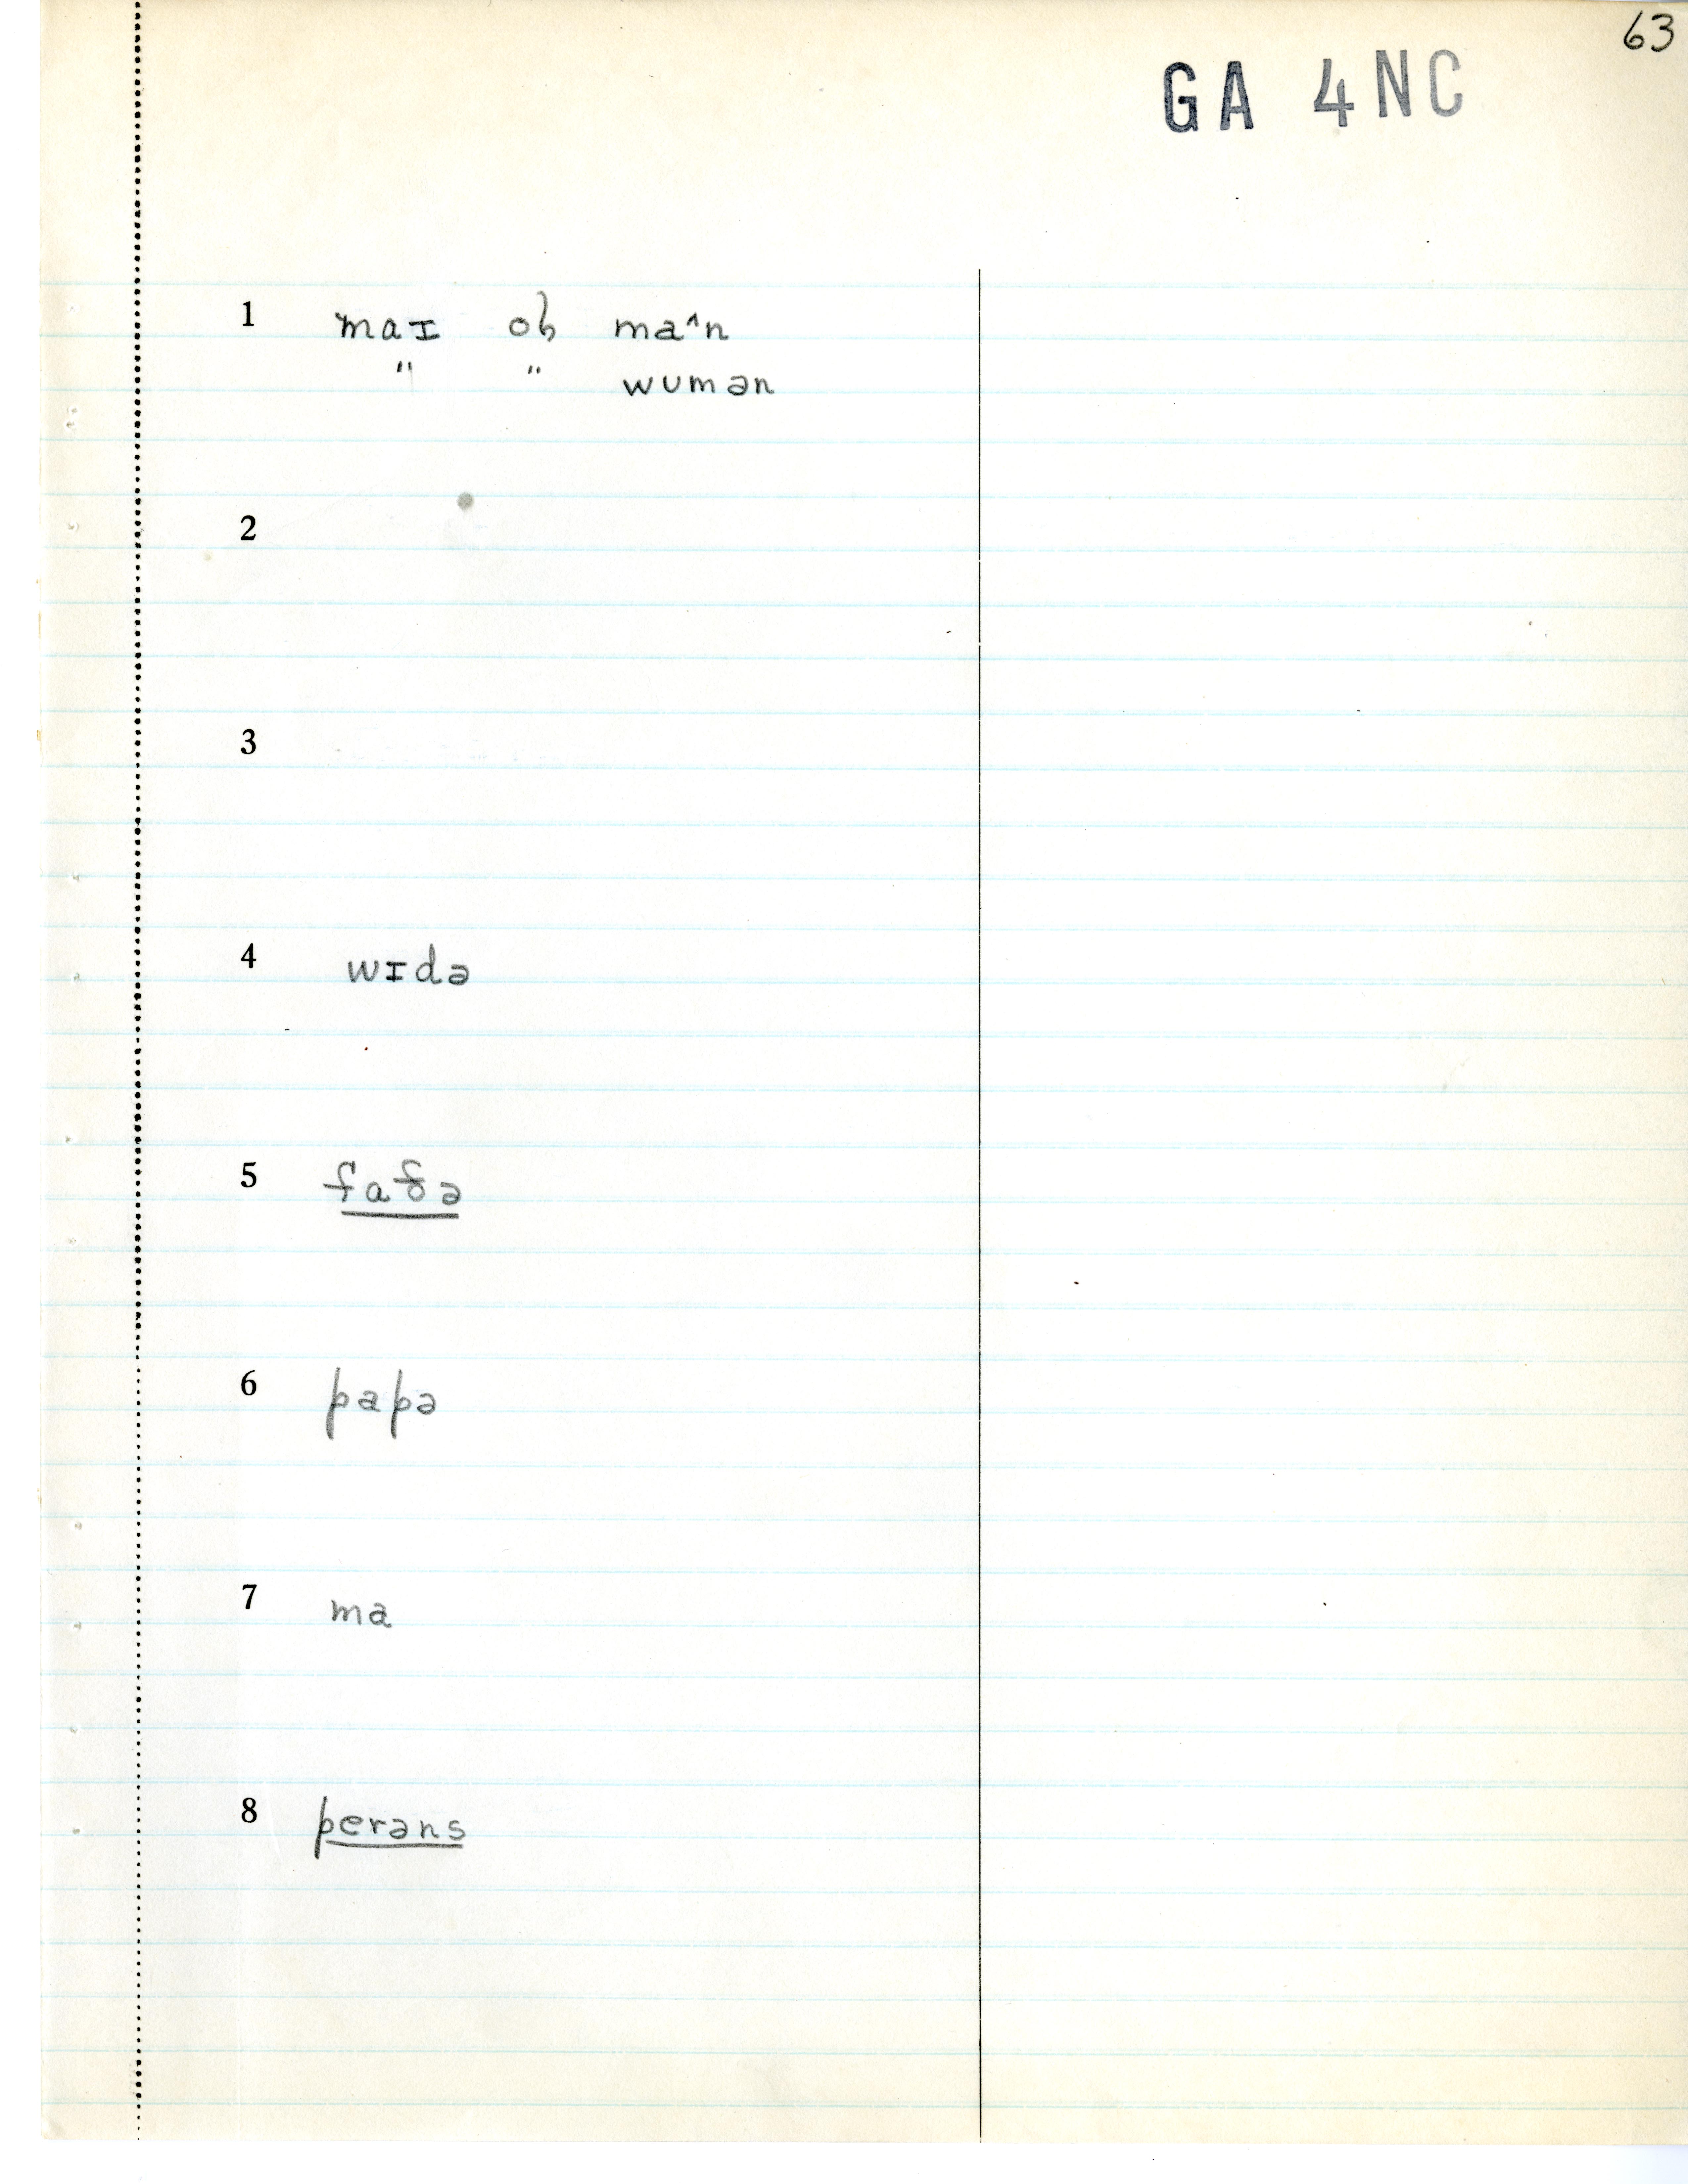 63
GA 4NC
1 maɪ ob ma^n
" " wumən
2
3
4 wɪdə
5 faðə
6 papə
7 ma
8 perəns